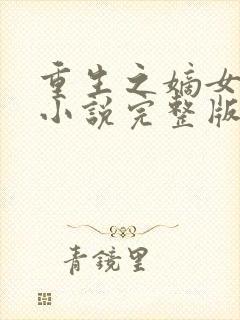 重生之嫡女
小说完整版
青镜里